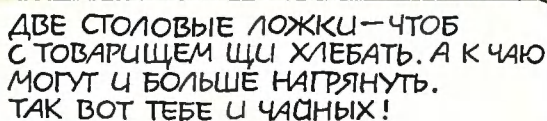 ДВЕ СТОЛОВЫЕ ЛОЖКИ — ЧТОБ
С ТОВАРИЩЕМ ЩИ ХЛЕБАТЬ. А К ЧАЮ
МОГУТ И БОЛЬШЕ НАГРЯНУТЬ.
ТАК ВОТ ТЕБЕ И ЧАЙНЫХ!